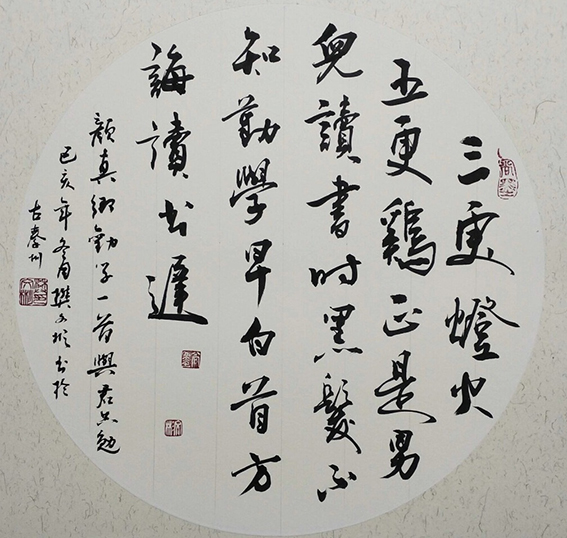 三更燈火
五更鷄正是男
兒讀書時黑髮不
知勤學早白首方
誨讀书遲
顏真卿勸学一首與君共勉
己亥年冬月书於
古秦州